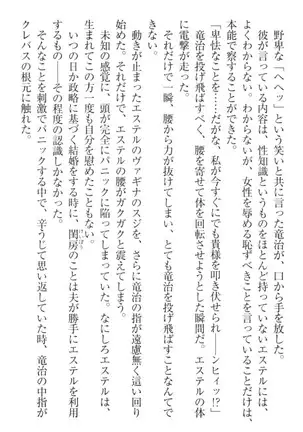 野卑な「ヘヘッ」という笑いと共に言った竜治が、口から手を放した。
彼が言っている内容は、性知識というものをほとんど持っていないエステルには、
よくわからない。わからないが、女性を辱める恥ずべきことを言っていることだけは、
本能で察することができた。
「卑怯なことを……だが、私が今すぐにでも貴様を叩き伏せられ――ンヒィッ!?」
竜治を投げ飛ばすべく、腰を寄せて体を回転させようとした瞬間だ。エステルの体
に電撃が走った。
それだけで一瞬、腰から力が抜けてしまい、とても竜治を投げ飛ばすことなんてで
きなかった。それどころか、エステルの腰がガクガクと震えてしまう。
動きが止まったエステルのヴァギナのスジを、さらに竜治の指が遠慮無く這い回り
始めた。それだけで、
未知の感覚に、頭が完全にパニックに陥ってしまう。なにしろエステルは、
生まれてこの方一度も自分を慰めたこともない。
いつの日か政略に基づく結婚をする時に、閨房のことは夫が勝手にエステルを利用
するもの――その程度の認識しかなかった。
そんなことを刺激でパニックする中で、辛うじて思い返していた時、竜治の中指が
クレバスの根元に触れた。